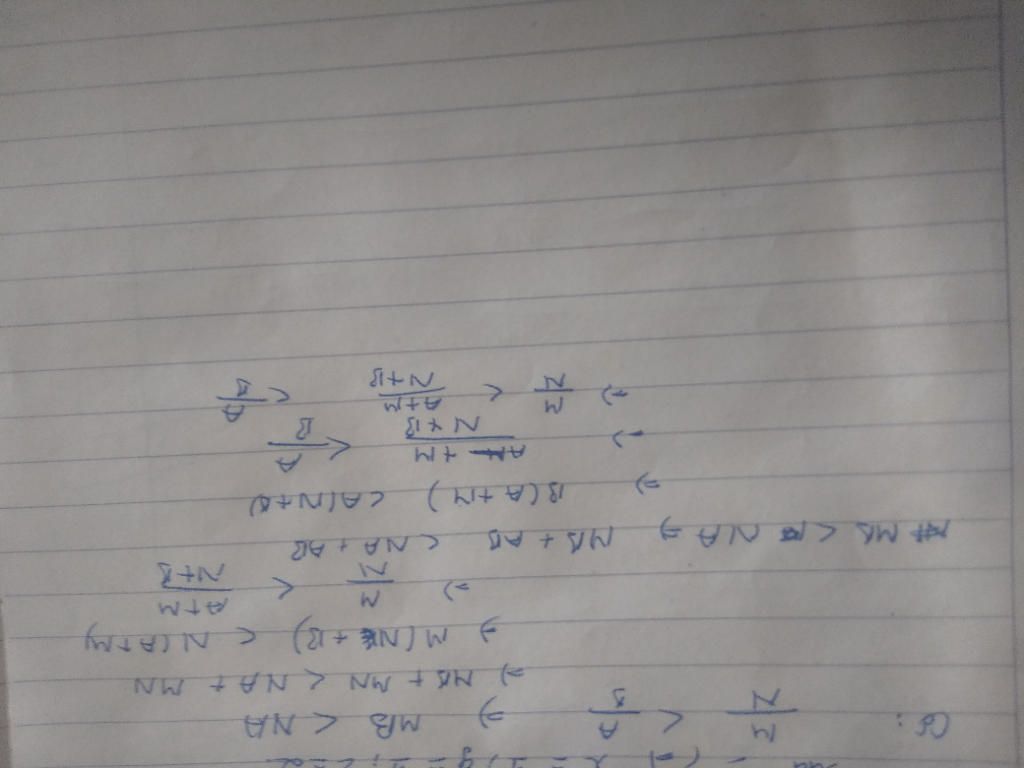 Có: M/N < A/B ⇒ MB < NA
⇒ MB + MN < NA + MN
⇒ M(N+B) < N(A+M)
⇒ M/N < (A+M)/(N+B)
MB < NA ⇒ MB + AB < NA + AB
⇒ B(A+M) < A(N+B)
⇒ (A+M)/(N+B) < A/B
⇒ M/N < (A+M)/(N+B) < A/B